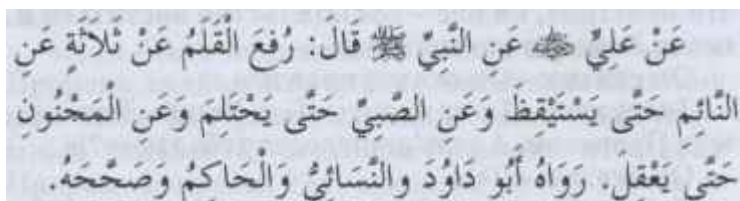 عَنْ عَلِيٍّ ﷺ عَنِ النَّبِيِّ ﷺ قَالَ: رُفِعَ الْقَلَمُ عَنْ ثَلَاثَةٍ عَنِ
النَّائِمِ حَتَّى يَسْتَيْقِظَ وَعَنِ الصَّبِيِّ حَتَّى يَحْتَلِمَ وَعَنِ الْمَجْنُونِ
حَتَّى يَعْقِلَ. رَوَاهُ أَبُو دَاوُدَ والنَّسَائِيُّ وَالْحَاكِمُ وَصَحَّحَهُ.